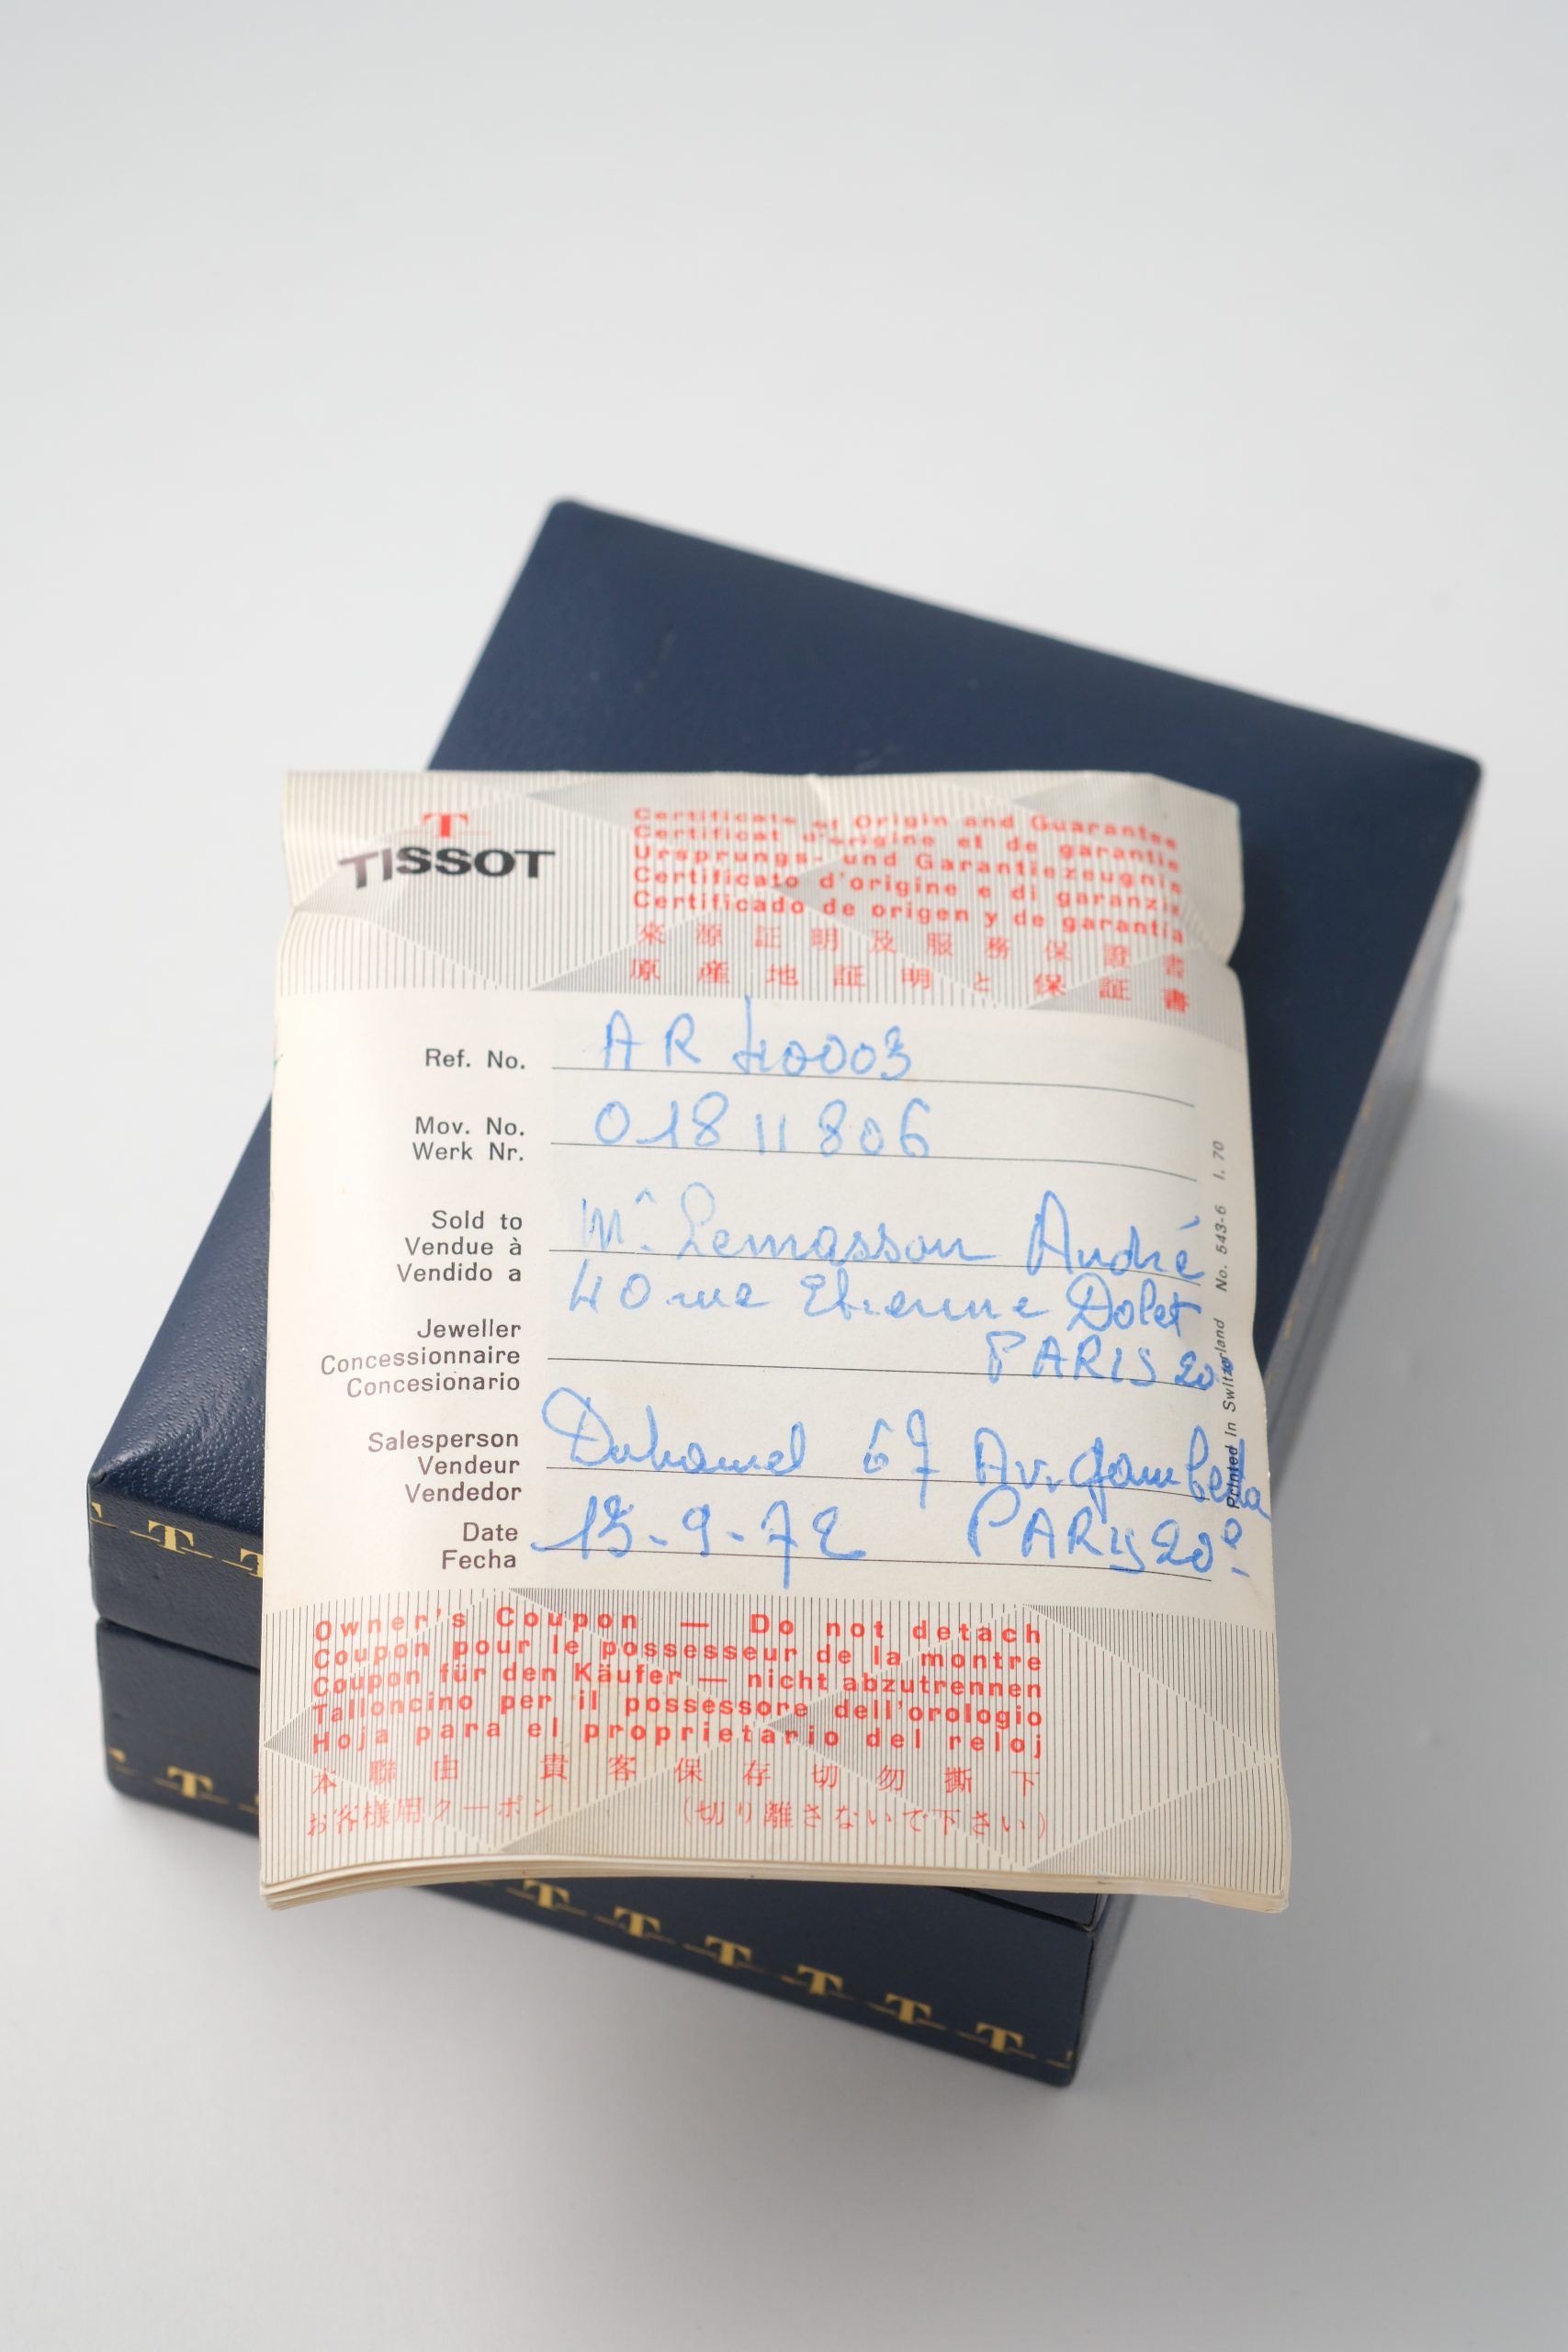 T
TISSOT
Certificate of Origin and Guarantee
Certificat d'origine et de garantie
Ursprungs- und Garantiezeugnis
Certificato d'origine e di garanzia
Certificado de origen y de garantía
來源証明及服務保證書
原産地証明と保証書
Ref. No. AR 40003
Mov. No. 01811806
Werk Nr.
Sold to
Vendue à Mr. Lemasson André
Vendido a
40 rue Etienne Dolet
Jeweller
Concessionnaire PARIS 20e
Concesionario
Salesperson
Vendeur Duhamel 67 Av. Gambetta
Vendedor
Date 15-9-72 PARIS 20e
Fecha
Printed in Switzerland No. 543-6 I. 70
Owner's Coupon — Do not detach
Coupon pour le possesseur de la montre
Coupon für den Käufer — nicht abzutrennen
Talloncino per il possessore dell'orologio
Hoja para el proprietario del reloj
本聯由 貴客保存切勿撕下
お客様用クーポン (切り離さないで下さい)
T T
T
T T T T T T